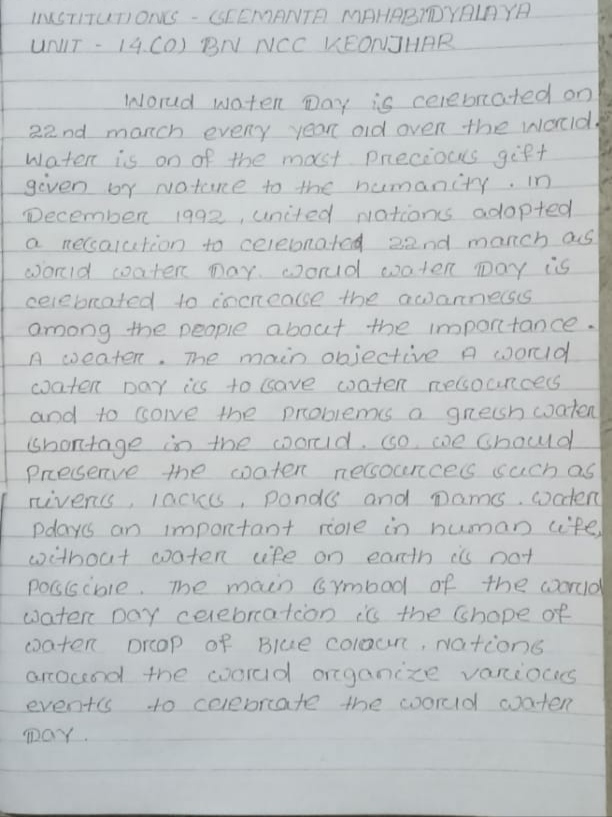 INSTITUTIONS - SEEMANTA MAHABIDYALAYA
UNIT - 14(O) BN NCC KEONJHAR
World water Day is celebrated on
22nd march every year old over the world.
Water is on of the most Precious gift
given by Nature to the humanity. in
December 1992, united Nations adopted
a resalution to celebrated 22nd march as
world water Day. world water Day is
celebrated to increase the awarness
among the people about the importance.
A weater. The main objective A world
water Day is to save water resources
and to solve the problems a gresh water
shortage in the world. so. we should
Preserve the water resources such as
rivers, lacks, Ponds and Dams. water
Pdays an important role in human life,
without water life on earth is not
Possible. The main symbod of the world
water Day celebration is the shope of
water Drop of Blue colour. Nations
around the world organize various
events to celebrate the world water
Day.